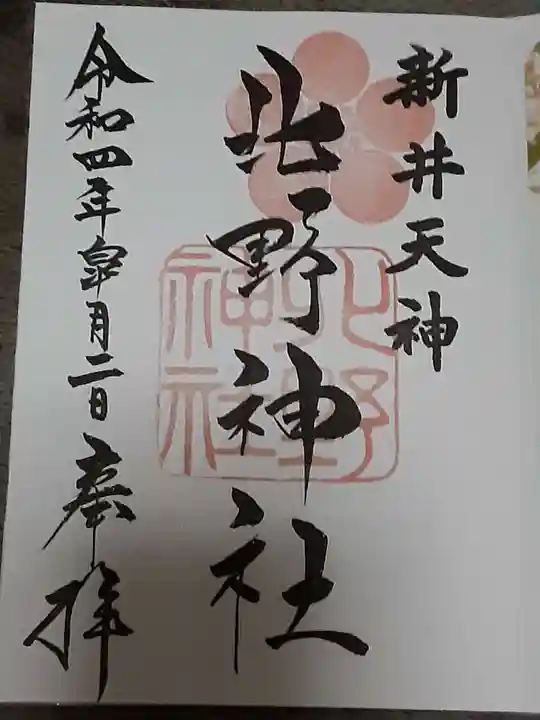 新井天神
北野神社
北野
神社
令和四年皐月二日 奉拝